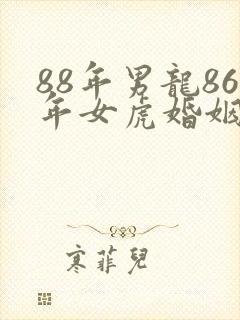 88年男龍86
年女虎婚姻
寒菲兒